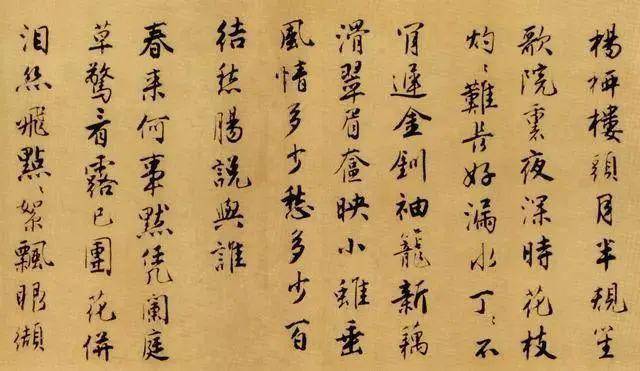 楊柳樓頭月半規笙
歌院裏夜深時花枝
灼〻難長好漏水丁〻不
肯遲金釧袖籠新藕
滑翠眉奩映小蛾垂
風情多少愁多少百
結愁腸說與誰
春來何事默凭闌庭
草驚看露已團花併
淚絲飛點〻絮飄眼纈